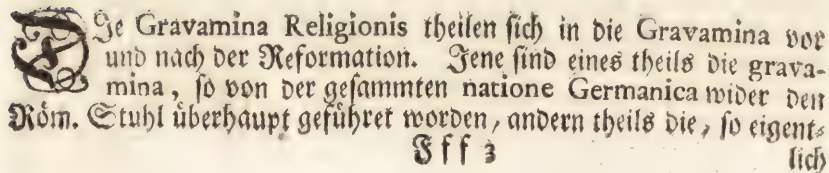 DIe Gravamina Religionis theilen sich in die Gravamina vor
und nach der Reformation. Jene sind eines theils die grava-
mina, so von der gesammten natione Germanica wider den
Röm. Stuhl überhaupt geführet worden, andern theils die, so eigent-
Fff 3 lich